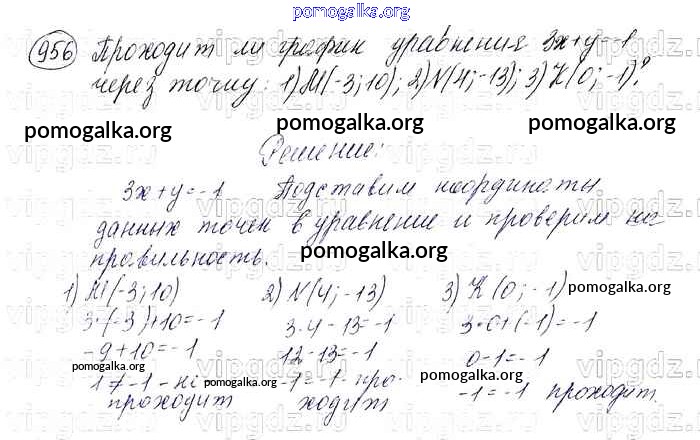 pomogalka.org
956 Проходит ли график уравнения 3x+y=-1
через точку: 1) M(-3; 10); 2) N(4; -13); 3) K(0; -1)?
pomogalka.org pomogalka.org
Решение:
pomogalka.org
3x+y=-1 Подставим координаты
данных точек в уравнение и проверим на
правильность.
pomogalka.org
1) M(-3; 10) 2) N(4; -13) 3) K(0; -1)
pomogalka.org
3·(-3)+10=-1 3·4-13=-1 3·0+(-1)=-1
pomogalka.org
-9+10=-1 12-13=-1 0-1=-1
pomogalka.org
1≠-1 - не -1=-1 - про- -1=-1 проходит
pomogalka.org pomogalka.org
проходит ходит